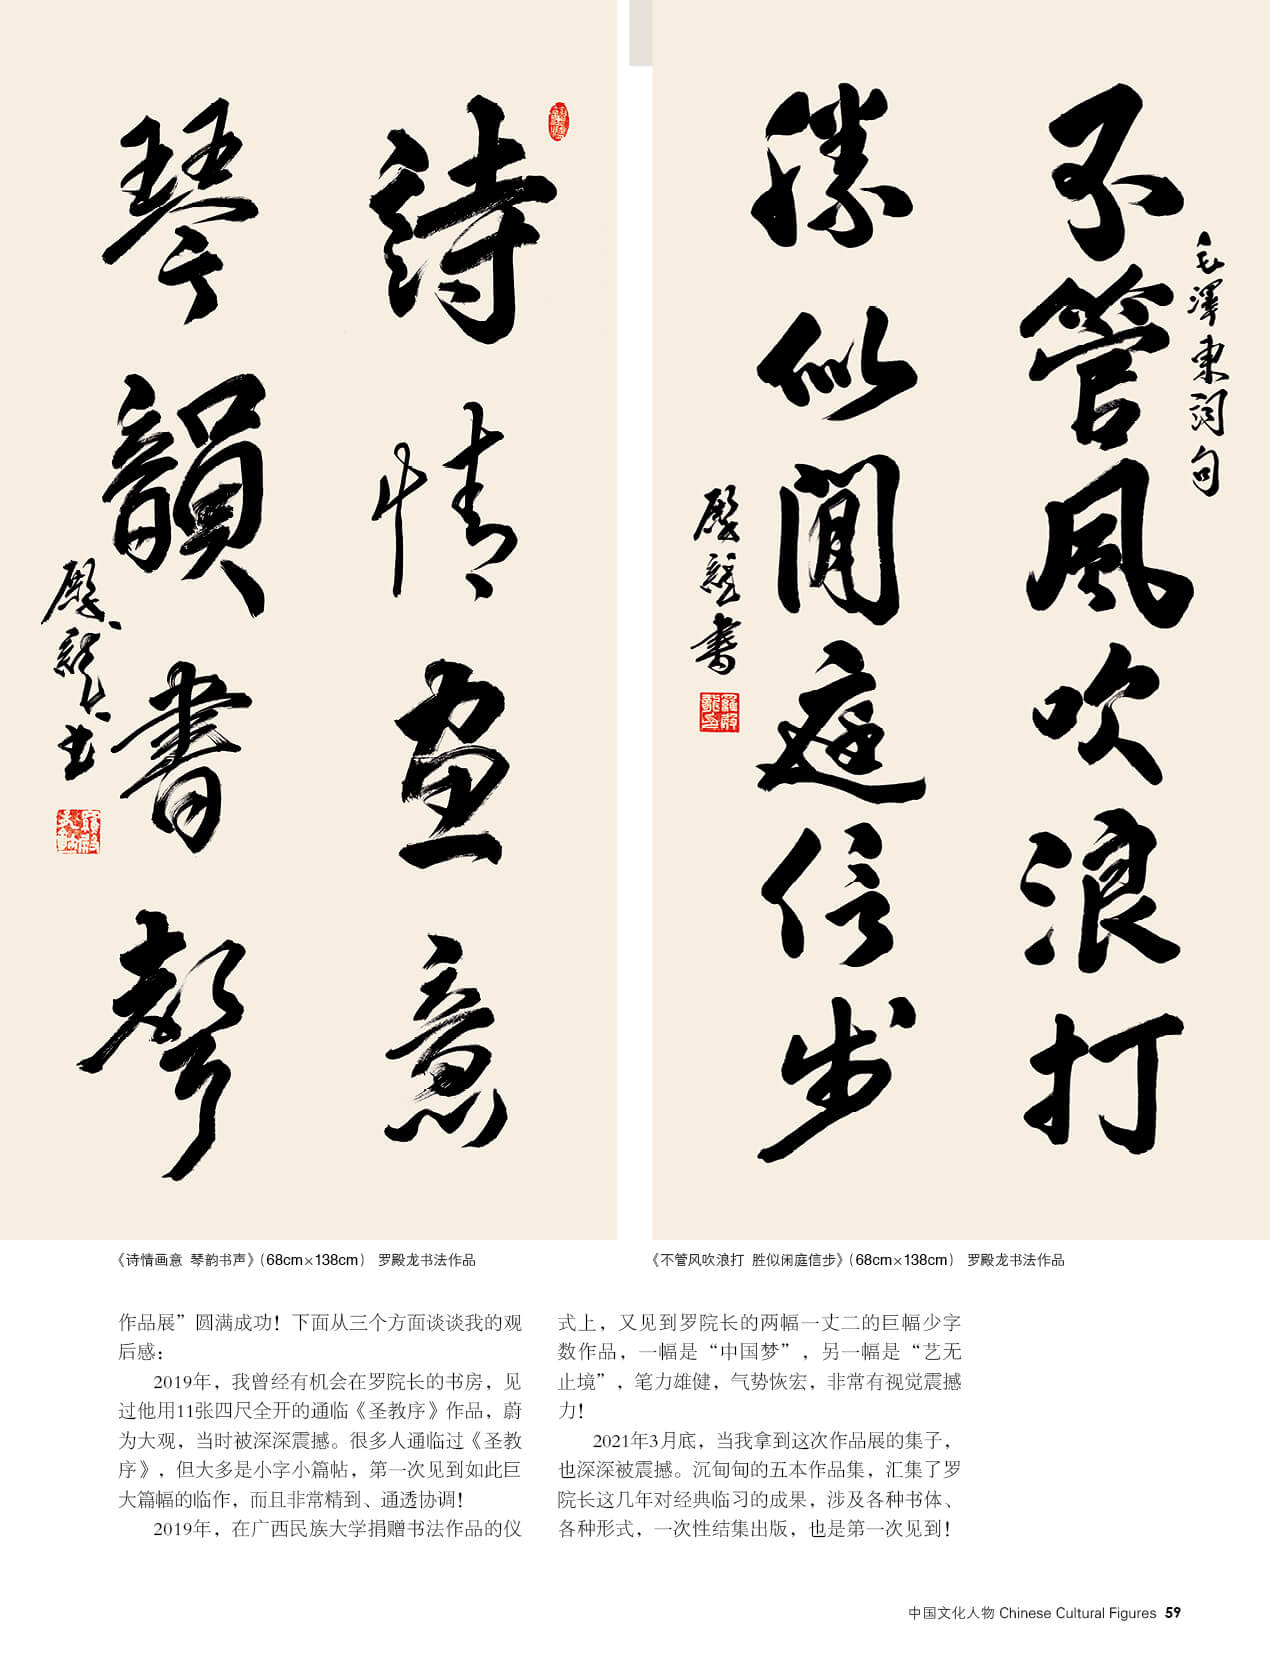 詩情画意
琴韻書聲
殿龍书
毛澤東詞句
不管風吹浪打
勝似閒庭信步
殿龍書
《诗情画意 琴韵书声》（68cm×138cm） 罗殿龙书法作品
《不管风吹浪打 胜似闲庭信步》（68cm×138cm） 罗殿龙书法作品
作品展”圆满成功！下面从三个方面谈谈我的观
后感：
2019年，我曾经有机会在罗院长的书房，见
过他用11张四尺全开的通临《圣教序》作品，蔚
为大观，当时被深深震撼。很多人通临过《圣教
序》，但大多是小字小篇帖，第一次见到如此巨
大篇幅的临作，而且非常精到、通透协调！
2019年，在广西民族大学捐赠书法作品的仪
式上，又见到罗院长的两幅一丈二的巨幅少字
数作品，一幅是“中国梦”，另一幅是“艺无
止境”，笔力雄健，气势恢宏，非常有视觉震撼
力！
2021年3月底，当我拿到这次作品展的集子，
也深深被震撼。沉甸甸的五本作品集，汇集了罗
院长这几年对经典临习的成果，涉及各种书体、
各种形式，一次性结集出版，也是第一次见到！
中国文化人物 Chinese Cultural Figures 59